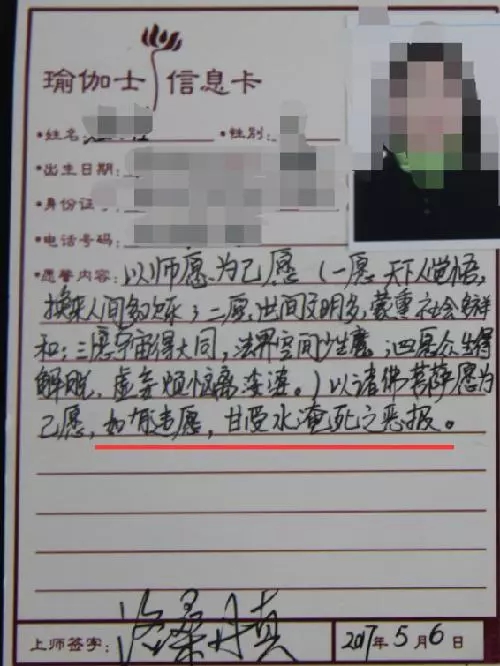 瑜伽士 信息卡
•姓名: •性别:
•出生日期:
•身份证
•电话号码:
•愿誓内容:以师愿为己愿(一愿天下人觉悟,
换来人间多欢乐;二愿世间文明多,蒙熏社会祥
和;三愿宇宙得大同,法界空间少生魔;四愿众生得
解脱,虚妄烦恼离娑婆。)以诸佛菩萨愿为
己愿,如有违愿,甘受水淹死之恶报。
上师签字:洛桑丹真 2017年5月6日